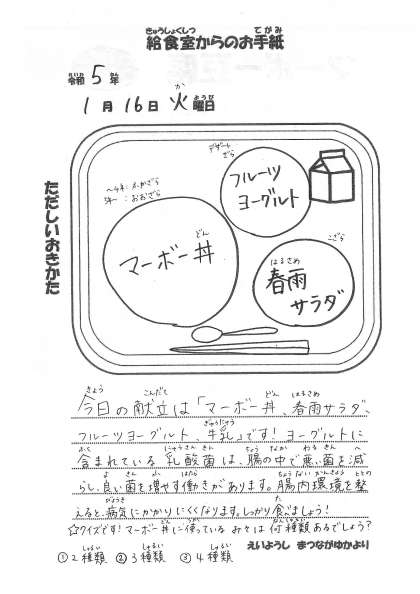 給食室からのお手紙
令和5年
1月16日火曜日
ただしいおきかた
デザートざら
フルーツ
ヨーグルト
マーボー丼
こざら
春雨
サラダ
今日の献立は「マーボー丼、春雨サラダ、
フルーツヨーグルト、牛乳」です！ヨーグルトに
含まれている乳酸菌は、腸の中で悪い菌を減
らし、良い菌を増やす働きがあります。腸内環境を整
えると、病気にかかりにくくなります。しっかり食べましょう！
☆クイズです！マーボー丼に使っているみそは何種類あるでしょう？
①2種類 ②3種類 ③4種類
えいようし まつながゆかより